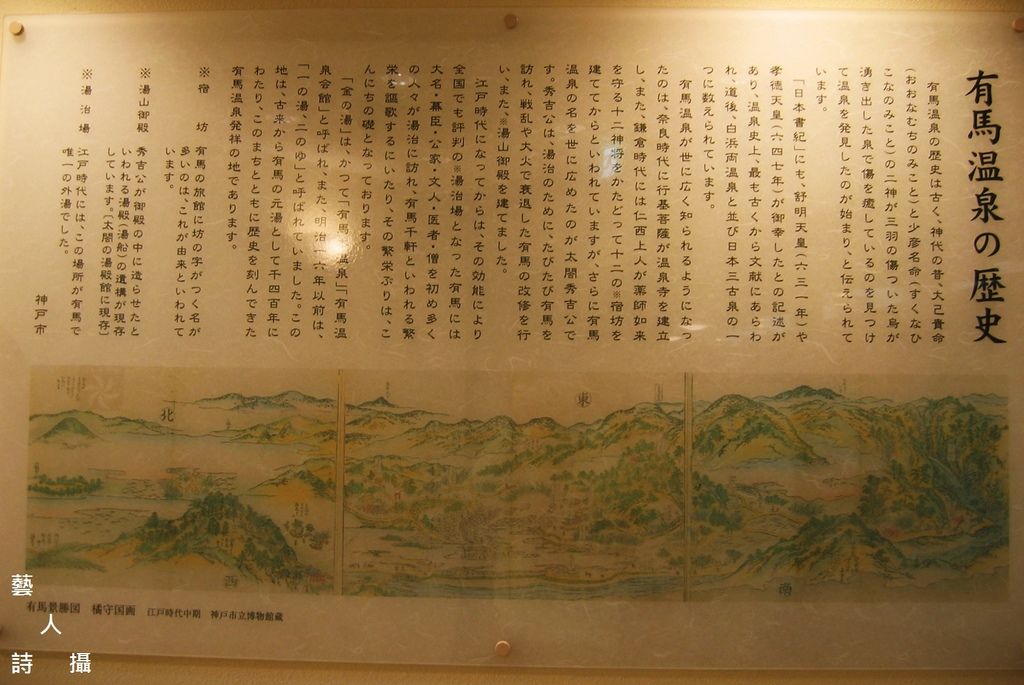 有馬温泉の歴史
有馬温泉の歴史は古く、神代の昔、大己貴命
(おおなむちのみこと)と少彦名命(すくなひ
こなのみこと)の二神が三羽の傷ついた烏が
湧き出した泉で傷を癒しているのを見つけ
て温泉を発見したのが始まり、と伝えられて
います。
「日本書紀」にも、舒明天皇(六三一年)や
孝徳天皇(六四七年)が御幸したとの記述が
あり、温泉史上、最も古くから文献にあらわ
れ、道後、白浜両温泉と並び日本三古泉の一
つに数えられています。
有馬温泉が世に広く知られるようになっ
たのは、奈良時代に行基菩薩が温泉寺を建立
し、また、鎌倉時代には仁西上人が薬師如来
を守る十二神将をかたどって十二の※宿坊を
建ててからといわれていますが、さらに有馬
温泉の名を世に広めたのが太閤秀吉公で
す。秀吉公は、湯治のために、たびたび有馬を
訪れ、戦乱や大火で衰退した有馬の改修を行
い、また、※湯山御殿を建てました。
江戸時代になってからは、その効能により
全国でも評判の※湯治場となった有馬には
大名・幕臣・公家・文人・医者・僧を初め多く
の人々が湯治に訪れ、有馬千軒といわれる繁
栄を謳歌するにいたり、その繁栄ぶりは、こ
んにちの礎となっております。
「金の湯」は、かつて「有馬温泉」「有馬温
泉会館」と呼ばれ、また、明治一六年以前は、
「一の湯、二のゆ」と呼ばれていました。この
地は、古来から有馬の元湯として千四百年に
わたり、このまちとともに歴史を刻んできた
有馬温泉発祥の地であります。
※宿坊 有馬の旅館に坊の字がつく名が
多いのは、これが由来といわれて
います。
※湯山御殿 秀吉公が御殿の中に造らせたと
いわれる湯殿(湯船)の遺構が現存
しています。(太閤の湯殿館に現存)
※湯治場 江戸時代には、この場所が有馬で
唯一の外湯でした。
神戸市
北
東
西
南
有馬景勝図 橘守国画 江戸時代中期 神戸市立博物館蔵
藝
人
詩 攝